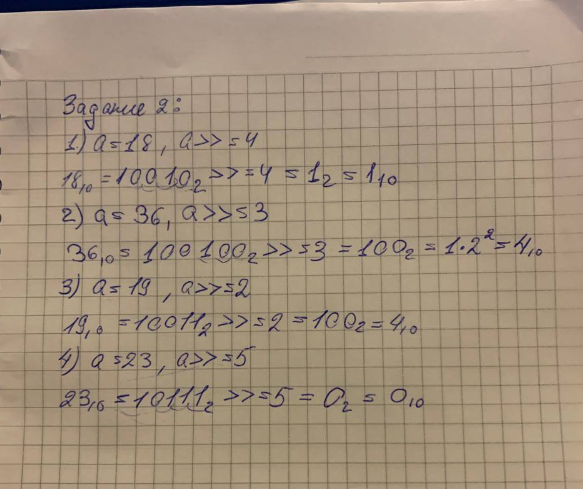 Задание 2:
1) a=18, a>>=4
18₁₀=10010₂>>=4=1₂=1₁₀
2) a=36, a>>=3
36₁₀=100100₂>>=3=100₂=1·2²=4₁₀
3) a=19, a>>=2
19₁₀=10011₂>>=2=100₂=4₁₀
4) a=23, a>>=5
23₁₀=10111₂>>=5=0₂=0₁₀